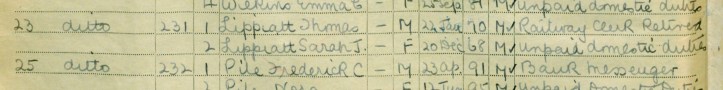 4 Wilkins Emma E - F 25 Sep 71 M Unpaid domestic duties
23 ditto 231 1 Lippiatt Thomas - M 22 Jan 70 M Railway Clerk Retired
2 Lippiatt Sarah J. - F 20 Dec 68 M Unpaid domestic duties.
25 ditto 232 1 Pile Frederick C - M 23 Ap. 91 M Bank Messenger
2 Pile - F 12 Jun 95 M Unpaid Domestic